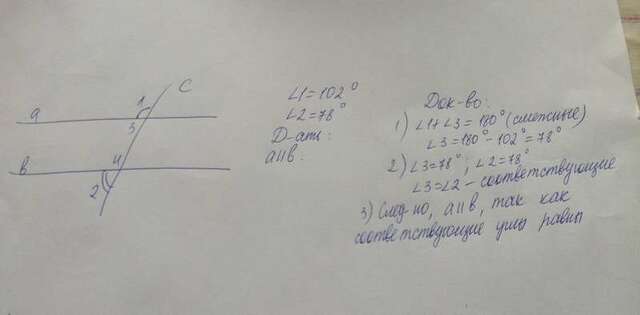 c
1
a
3
4
в
2
∠1=102°
∠2=78°
Д-ать:
a||в.
Док-во:
1) ∠1+∠3=180° (смежные)
∠3=180°-102°=78°
2) ∠3=78°; ∠2=78°
∠3=∠2 - соответствующие
3) След-но, a||в, так как
соответствующие углы равны